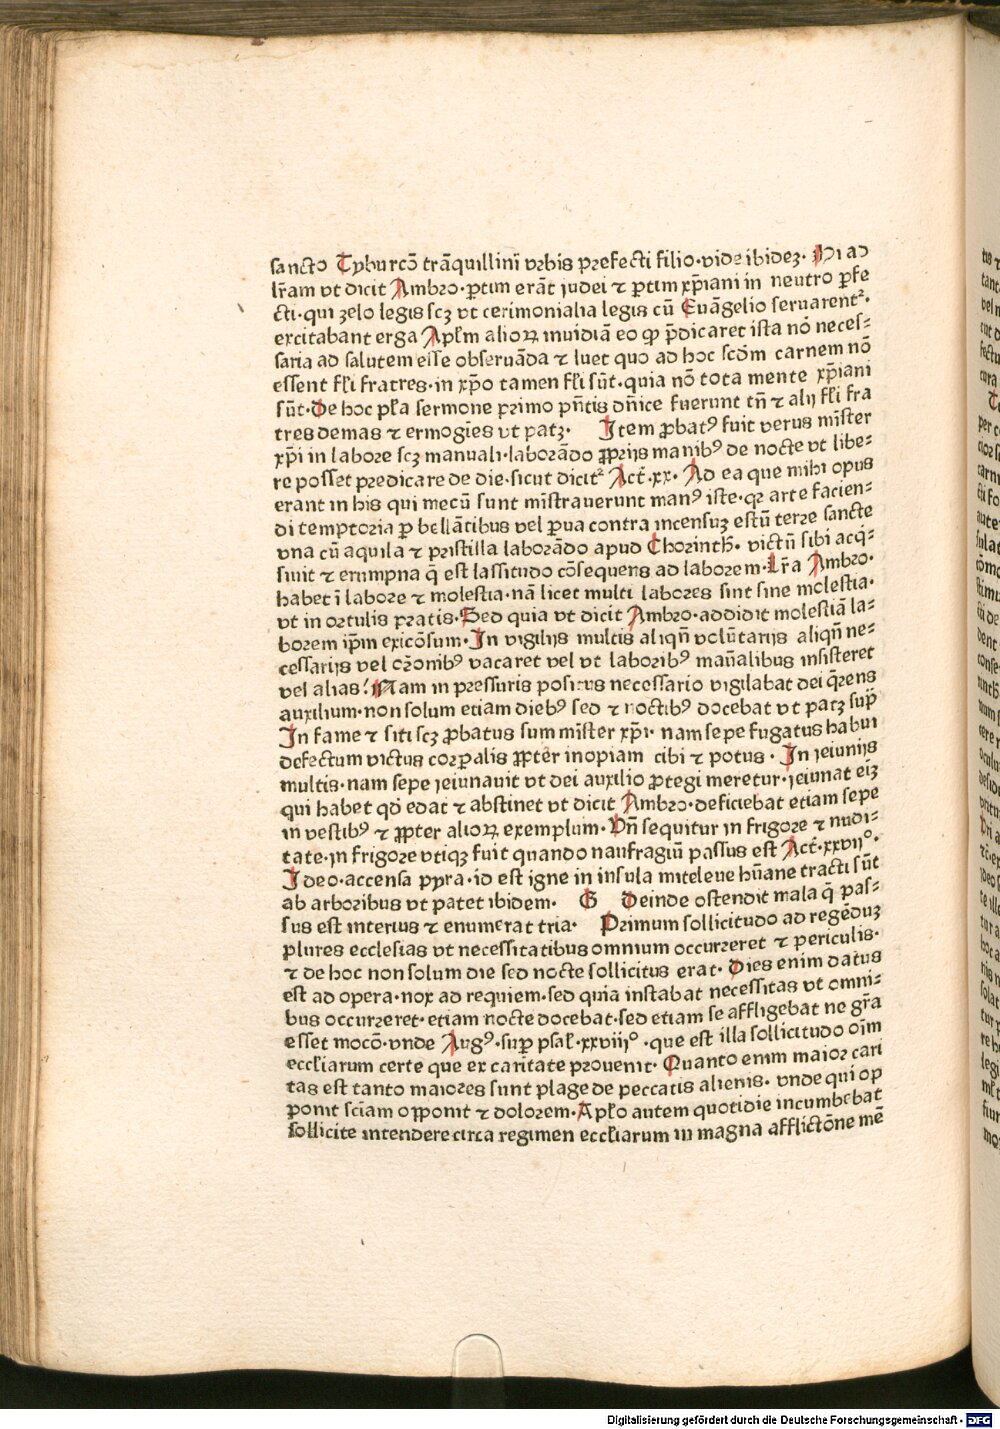 sancto Tyburcō trāquillini vrbis prefecti filio·vide ibidez· Hi ad
lr̄am vt dicit Ambro·ꝑtim erāt iudei ⁊ ꝑtim xp̄iani in neutro ꝑfe
cti·qui zelo legis scz vt cerimonialia legis cū Euāgelio seruarent᷑·
excitabant erga Apl̄m alioꝝ inuidiā eo ꝙ p̄dicaret ista nō neces⸗
saria ad salutem eſſe obseruāda ⁊ luet quo ad hoc scd̄m carnem nō
essent fl̄i fratres·in xp̄o tamen fl̄i sūt·quia nō tota mente xp̄iani
sūt·De hoc pl̄a sermone primo pn̄tis dn̄ice fuerunt tn̄ ⁊ alij fl̄i fra
tres demas ⁊ ermogīes vt patꝫ· Item ꝓbatꝰ fuit verus mīster
xp̄i in labore scꝫ manuali·laborādo ꝓprijs manibꝰ de nocte vt libe⸗
re posset predicare de die·sicut dicit᷑ Act̄·xx· Ad ea que mihi opus
erant in his qui mecū sunt mīstrauerunt manꝰ iste·qꝛ arte facien⸗
di temptoria ꝑ bellātibus vel ꝑua contra incensuꝫ estū terre sancte
vna cū aquila ⁊ pristilla laborādo apud Chorinth̄· victū sibi acq̄⸗
siuit ⁊ erumpna q̄ est lassitudo cōsequens ad laborem·Lr̄a Ambro·
habet ī labore ⁊ molestia·nā licet multi labores sint sine molestia·
vt in ortulis pratis·Sed quia vt dicit Ambro·addidit molestiā la⸗
borem ip̄m exicōsum·In vigilijs multis aliqn̄ volūtarijs aliqn̄ ne⸗
cessarijs vel or̄onibꝰ vacaret vel vt laboribꝰ man̄alibus insisteret
vel alias! Nam in pressuris positus necessario vigilabat dei q̄rens
auxilium·non solum etiam diebꝰ sed ⁊ noctibꝰ docebat vt patꝫ sup̄
In fame ⁊ siti scꝫ ꝓbatus sum mīster xp̄i· nam sepe fugatus habui
defectum victus corꝑalis ꝓpt̄er inopiam cibi ⁊ potus· In ieiunijs
multis·nam sepe ieiunauit vt dei auxilio ꝓtegi meretur·ieiunat eīꝫ
qui habet qd̄ edat ⁊ abstinet vt dicit Ambro·deficiebat etiam sepe
in vestibꝰ ⁊ ꝓpter alioꝝ exemplum·Vn̄ sequitur in frigore ⁊ nudi⸗
tate·in frigore vtiqꝫ fuit quando naufragiū passus est Act̄·xxvijº·
Ideo·accensa pyra·id est igne in insula miteleue hūane tracti sūt
ab arboribus vt patet ibidem· G Deinde ostendit mala q̄ pas⸗
sus est interius ⁊ enumerat tria· Primum sollicitudo ad regēduꝫ
plures ecclesias vt necessitatibus omnium occurreret ⁊ periculis·
⁊ de hoc non solum die sed nocte sollicitus erat· Dies enim datus
est ad opera·nox ad requiem·sed quia instabat necessitas vt omni⸗
bus occurreret·etiam nocte docebat·sed etiam se affligebat ne gr̄a
esset mocō·vnde Augꝰ·suꝑ psal̄·xxviijº·que est illa sollicitudo oīm
eccl̄iarum certe que ex caritate prouenit· Quanto enim maior cari
tas est tanto maiores sunt plage de peccatis alienis· vnde qui op
ponit sciam oꝓponit ⁊ dolorem·Apl̄o autem quotidie incumbebat
sollicite intendere circa regimen eccl̄iarum in magna afflictōne mē
Digitalisierung gefördert durch die Deutsche Forschungsgemeinschaft - DFG